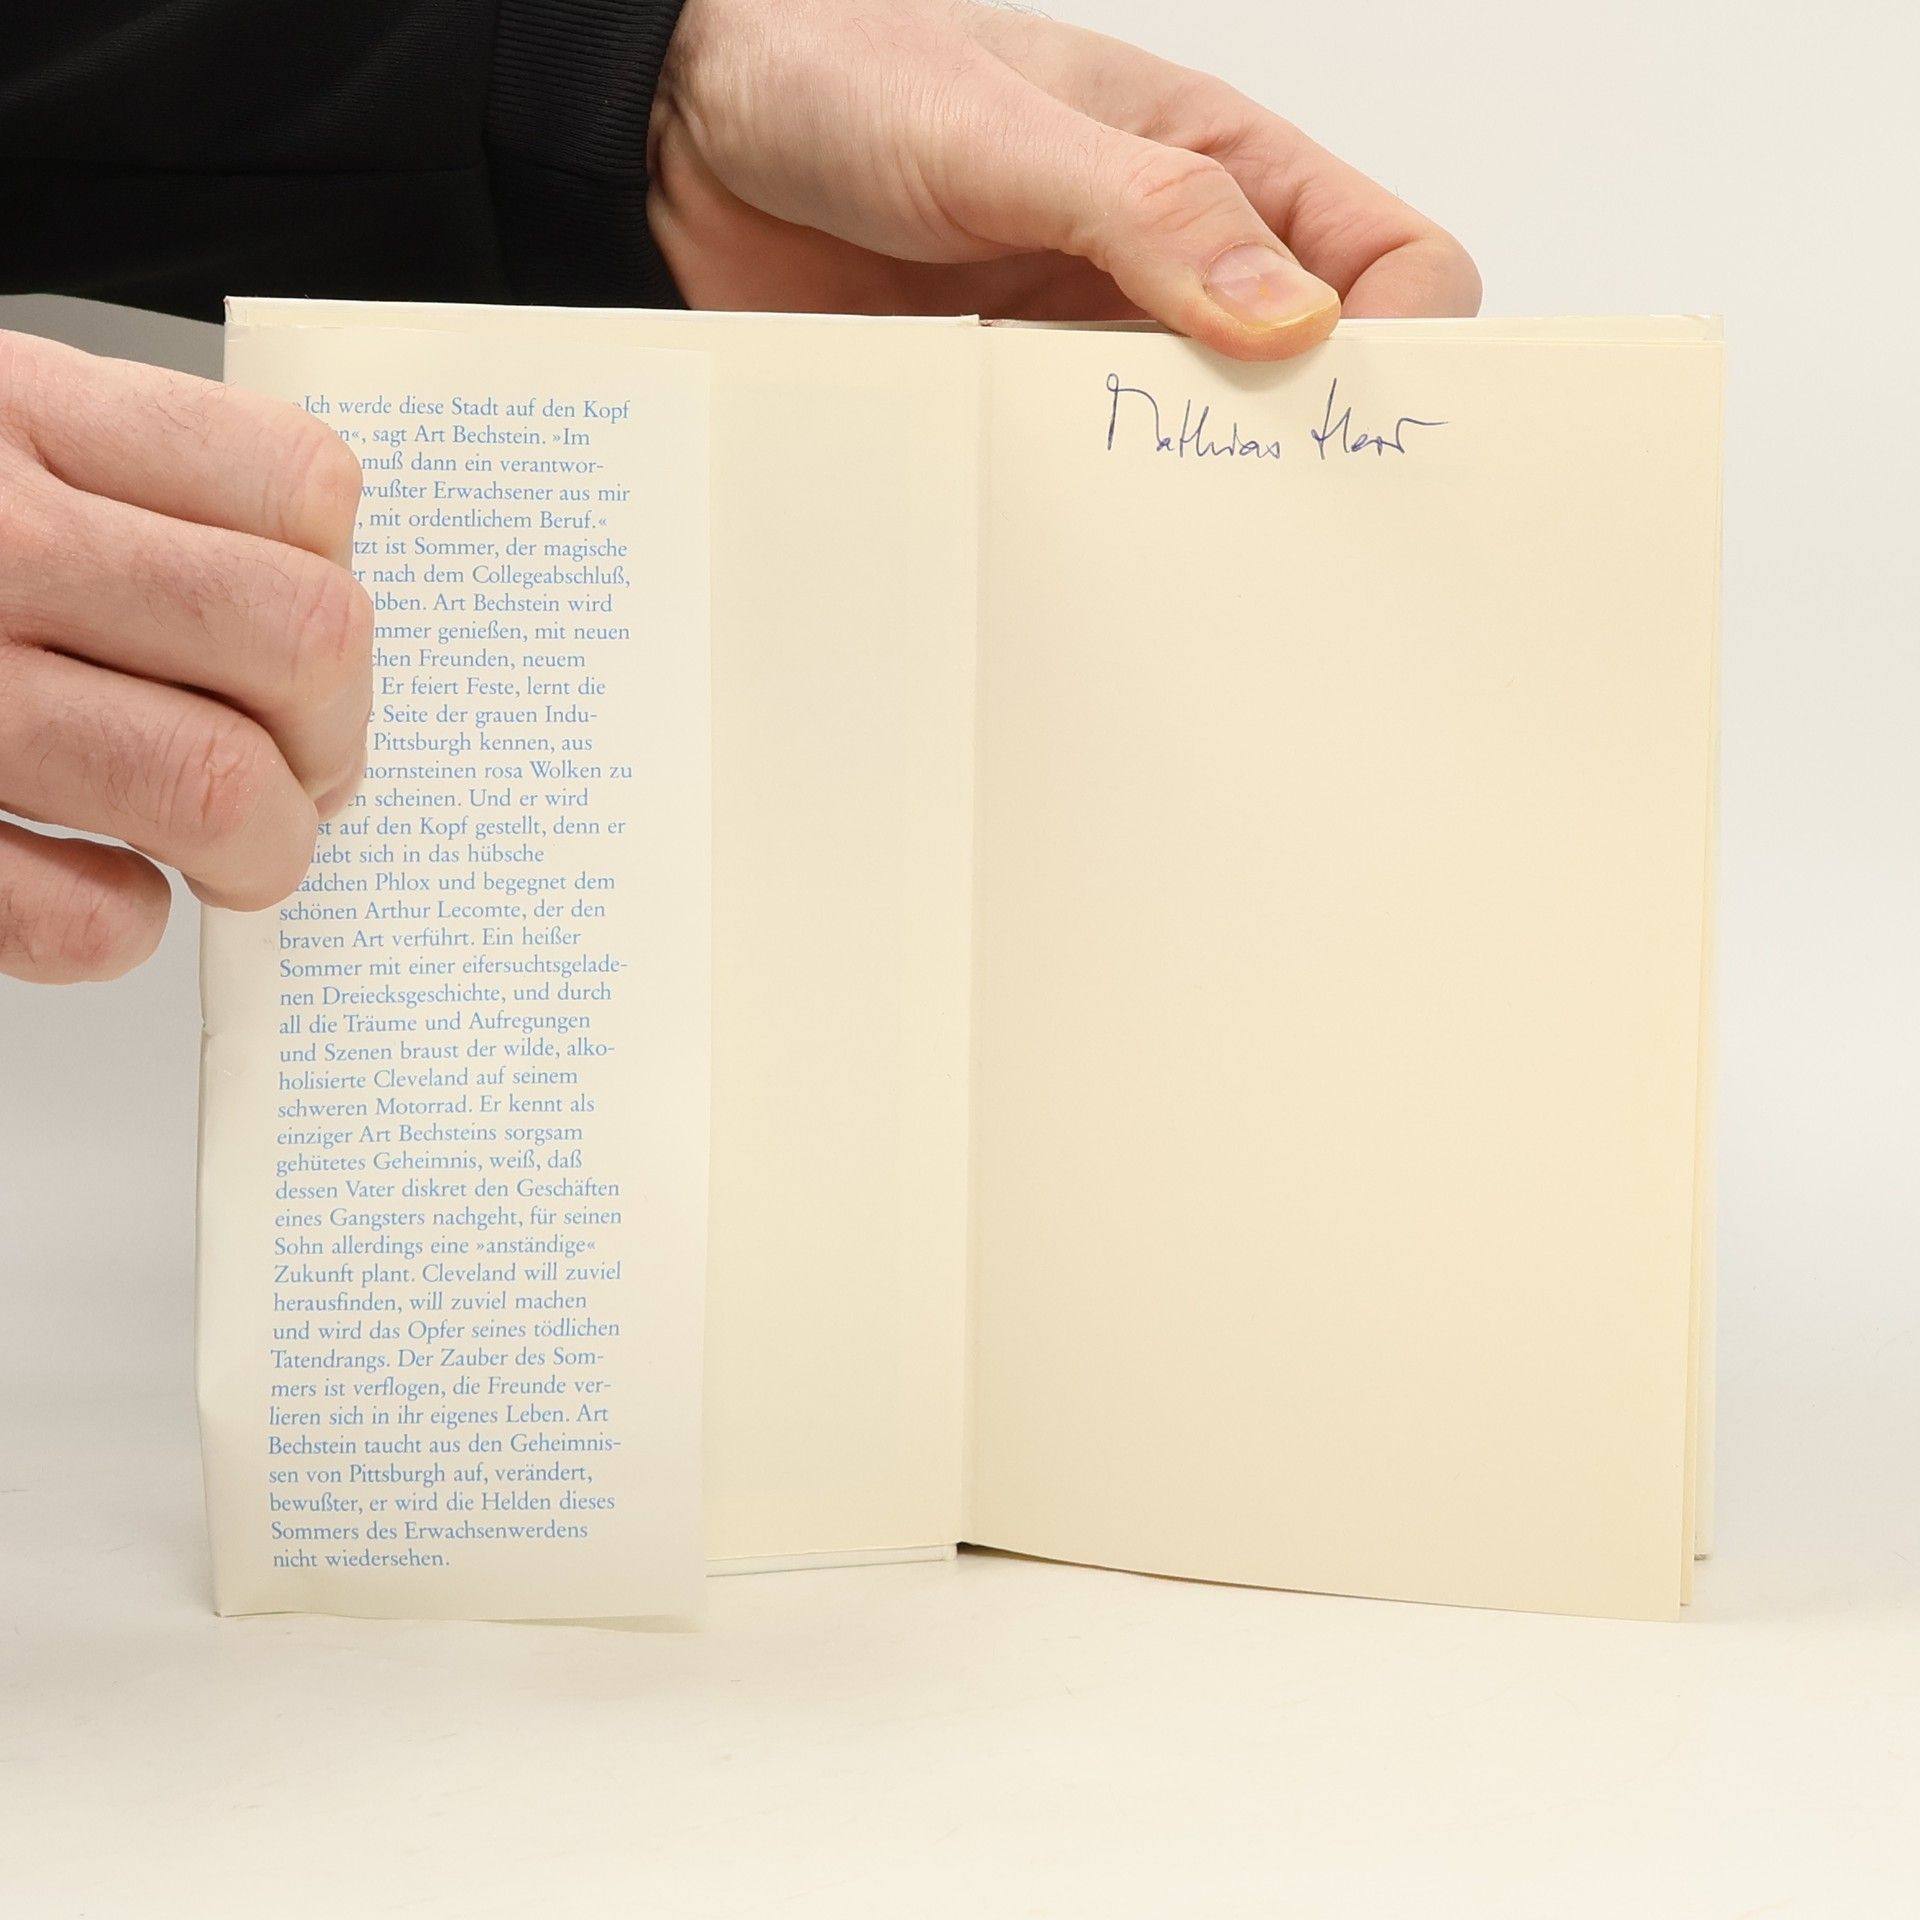 »Ich werde diese Stadt auf den Kopf
sagt Art Bechstein. »Im
muß dann ein verantwor-
wußter Erwachsener aus mir
, mit ordentlichem Beruf.«
tzt ist Sommer, der magische
er nach dem Collegeabschluß,
bben. Art Bechstein wird
mmer genießen, mit neuen
chen Freunden, neuem
Er feiert Feste, lernt die
Seite der grauen Indu-
Pittsburgh kennen, aus
hornsteinen rosa Wolken zu
en scheinen. Und er wird
st auf den Kopf gestellt, denn er
liebt sich in das hübsche
ädchen Phlox und begegnet dem
schönen Arthur Lecomte, der den
braven Art verführt. Ein heißer
Sommer mit einer eifersuchtsgelade-
nen Dreiecksgeschichte, und durch
all die Träume und Aufregungen
und Szenen braust der wilde, alko-
holisierte Cleveland auf seinem
schweren Motorrad. Er kennt als
einziger Art Bechsteins sorgsam
gehütetes Geheimnis, weiß, daß
dessen Vater diskret den Geschäften
eines Gangsters nachgeht, für seinen
Sohn allerdings eine »anständige«
Zukunft plant. Cleveland will zuviel
herausfinden, will zuviel machen
und wird das Opfer seines tödlichen
Tatendrangs. Der Zauber des Som-
mers ist verflogen, die Freunde ver-
lieren sich in ihr eigenes Leben. Art
Bechstein taucht aus den Geheimnis-
sen von Pittsburgh auf, verändert,
bewußter, er wird die Helden dieses
Sommers des Erwachsenwerdens
nicht wiedersehen.
Mathias